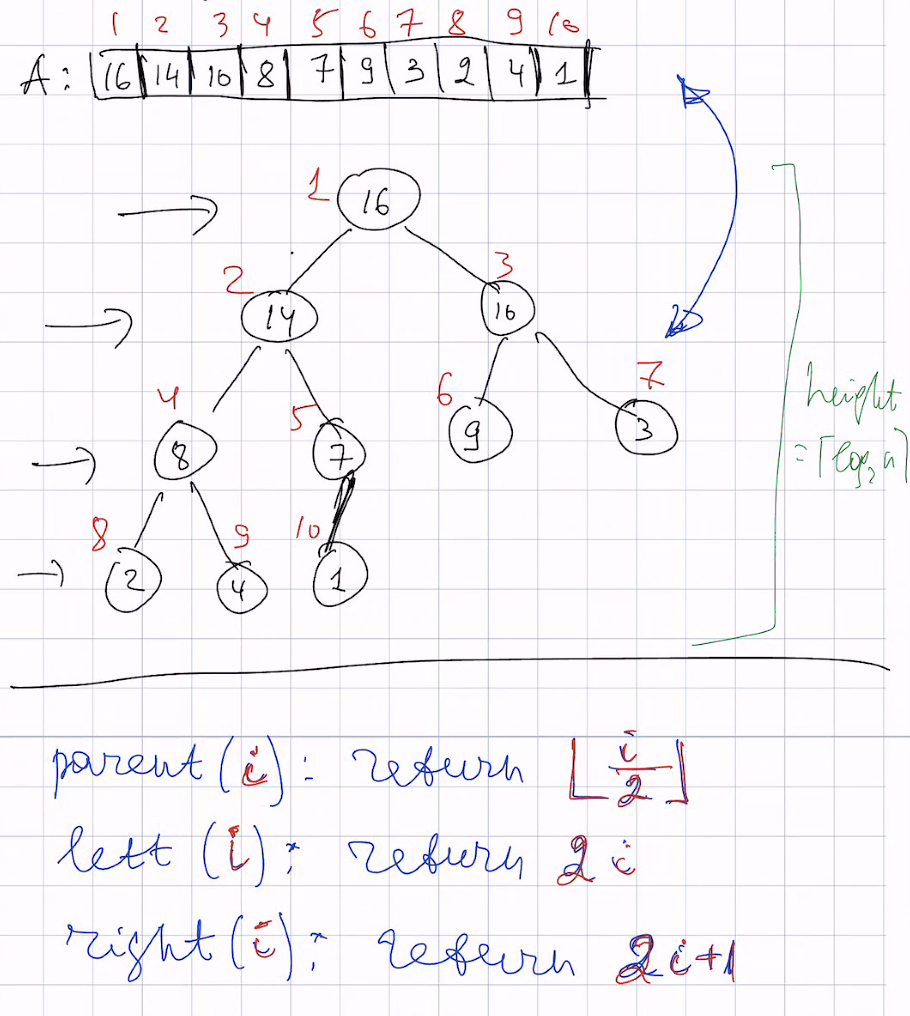 1 2 3 4 5 6 7 8 9 10
A: 16 14 10 8 7 9 3 2 4 1
1 16
2 3
14 10
4 5 6 7
8 7 9 3
height
= ⌈log₂ n⌉
8 9 10
2 4 1
parent (i): return ⌊i/2⌋
left (i): return 2i
right (i): return 2i+1